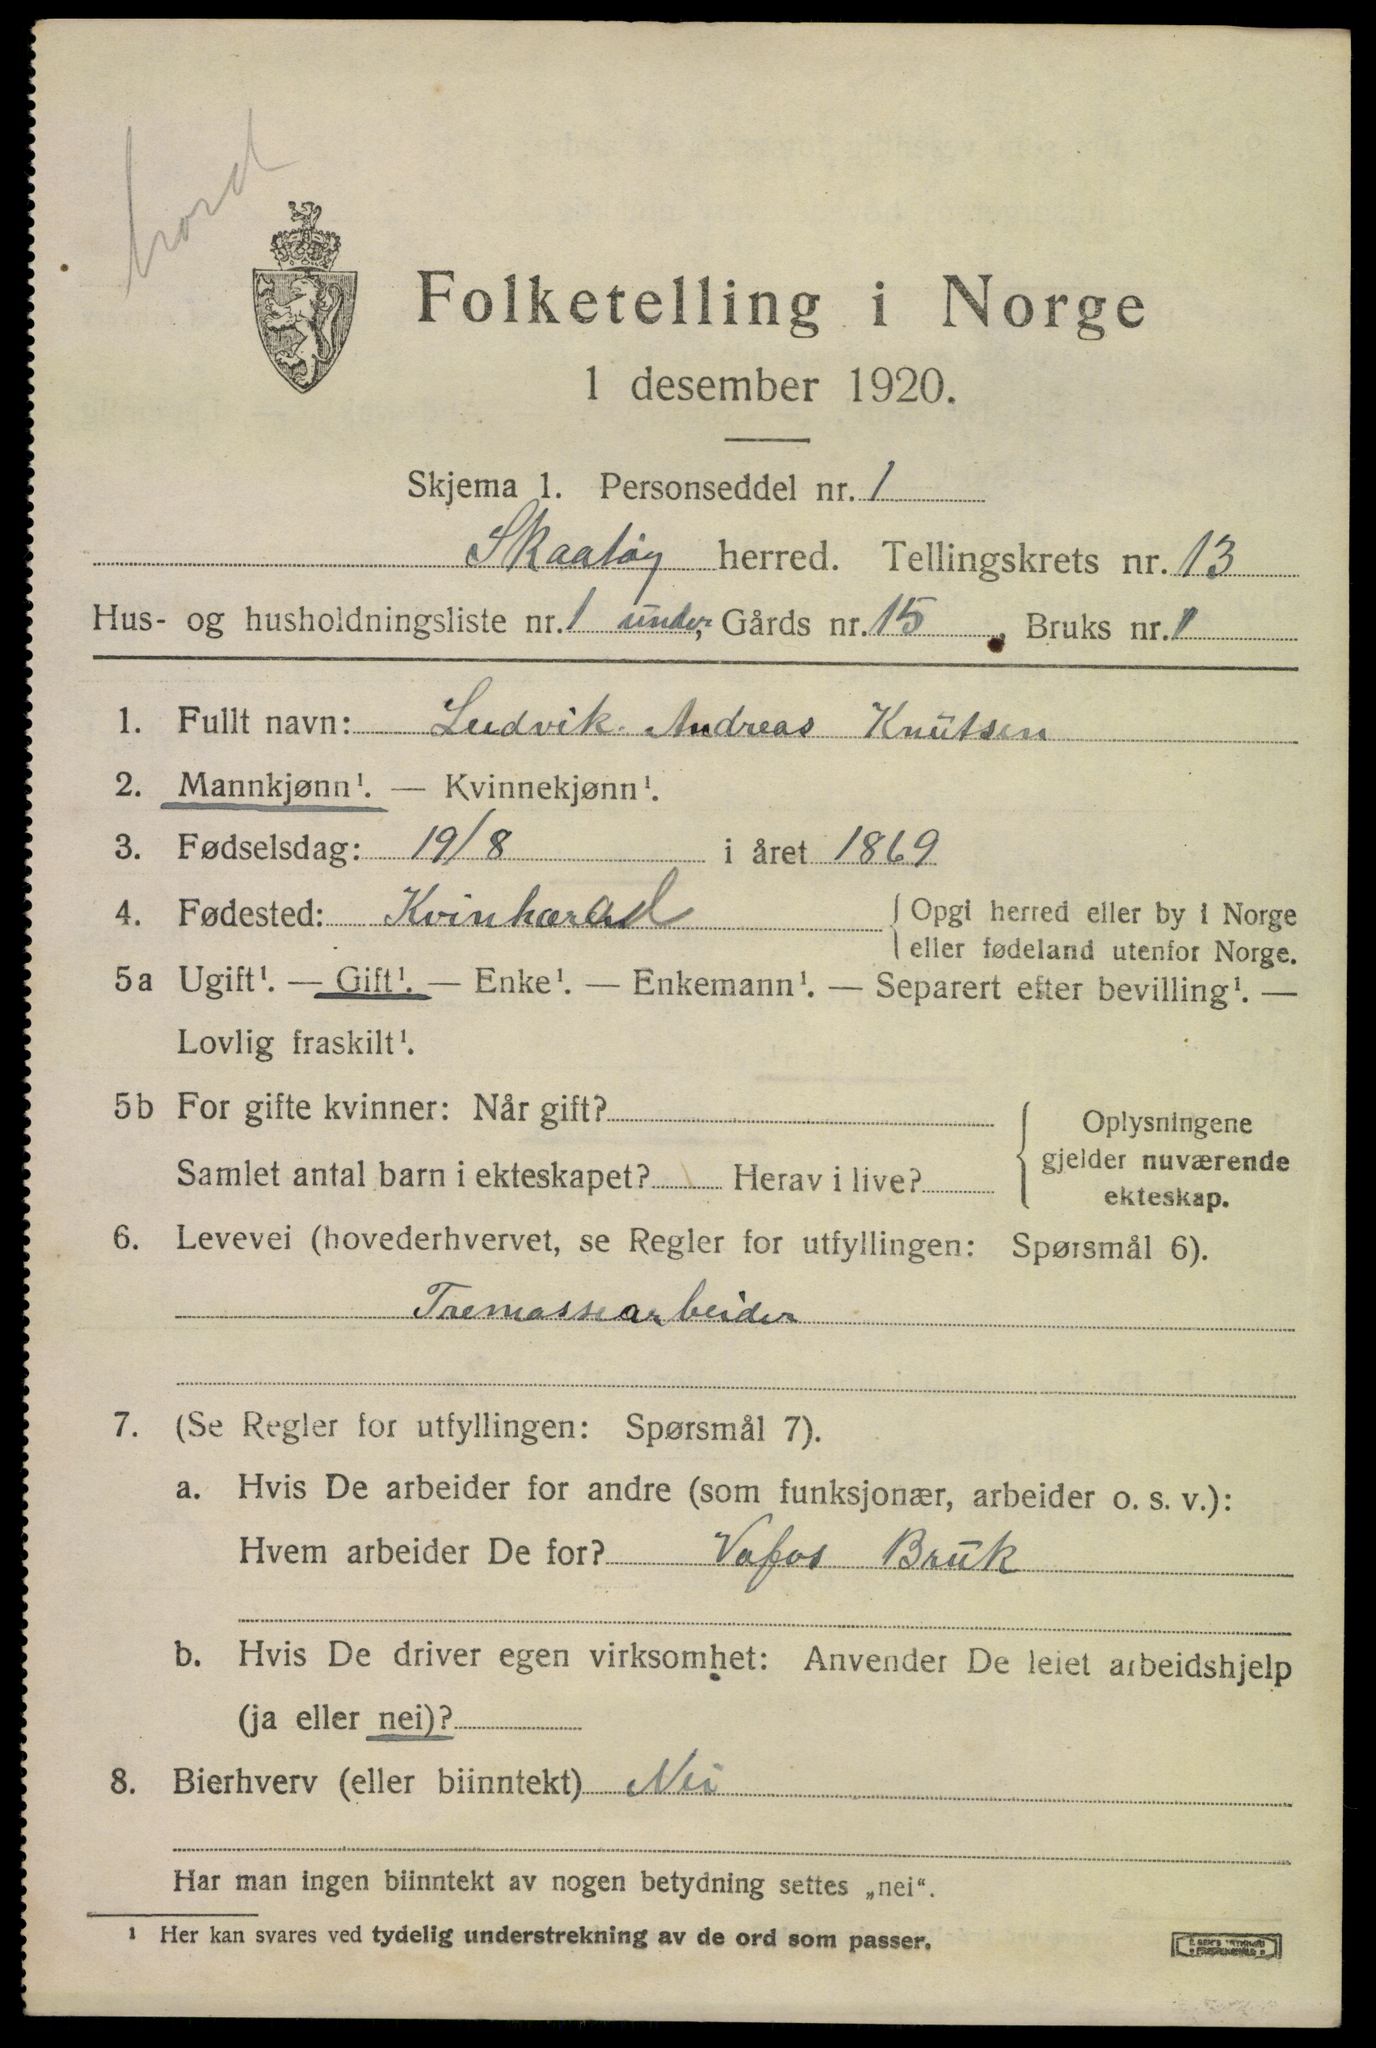 hord
Folketelling i Norge
1 desember 1920.
Skjema 1. Personseddel nr. 1
Skaatøy herred. Tellingskrets nr. 13
Hus- og husholdningsliste nr. 1 under, Gårds nr. 15, Bruks nr. 1
1. Fullt navn: Ludvik Andreas Knutsen
2. Mannkjønn¹. — Kvinnekjønn¹.
3. Fødselsdag: 19/8 i året 1869
4. Fødested: Kvinhærad { Opgi herred eller by i Norge
eller fødeland utenfor Norge.
5a Ugift¹. — Gift¹. — Enke¹. — Enkemann¹. — Separert efter bevilling¹. —
Lovlig fraskilt¹.
5b For gifte kvinner: Når gift?
Samlet antal barn i ekteskapet? Herav i live?
Oplysningene
gjelder nuværende
ekteskap.
6. Levevei (hovederhvervet, se Regler for utfyllingen: Spørsmål 6).
Tremassearbeider
7. (Se Regler for utfyllingen: Spørsmål 7).
a. Hvis De arbeider for andre (som funksjonær, arbeider o. s. v.):
Hvem arbeider De for? Vafos Bruk
b. Hvis De driver egen virksomhet: Anvender De leiet arbeidshjelp
(ja eller nei)?
8. Bierhverv (eller biinntekt) Nei
Har man ingen biinntekt av nogen betydning settes „nei“.
¹ Her kan svares ved tydelig understrekning av de ord som passer.